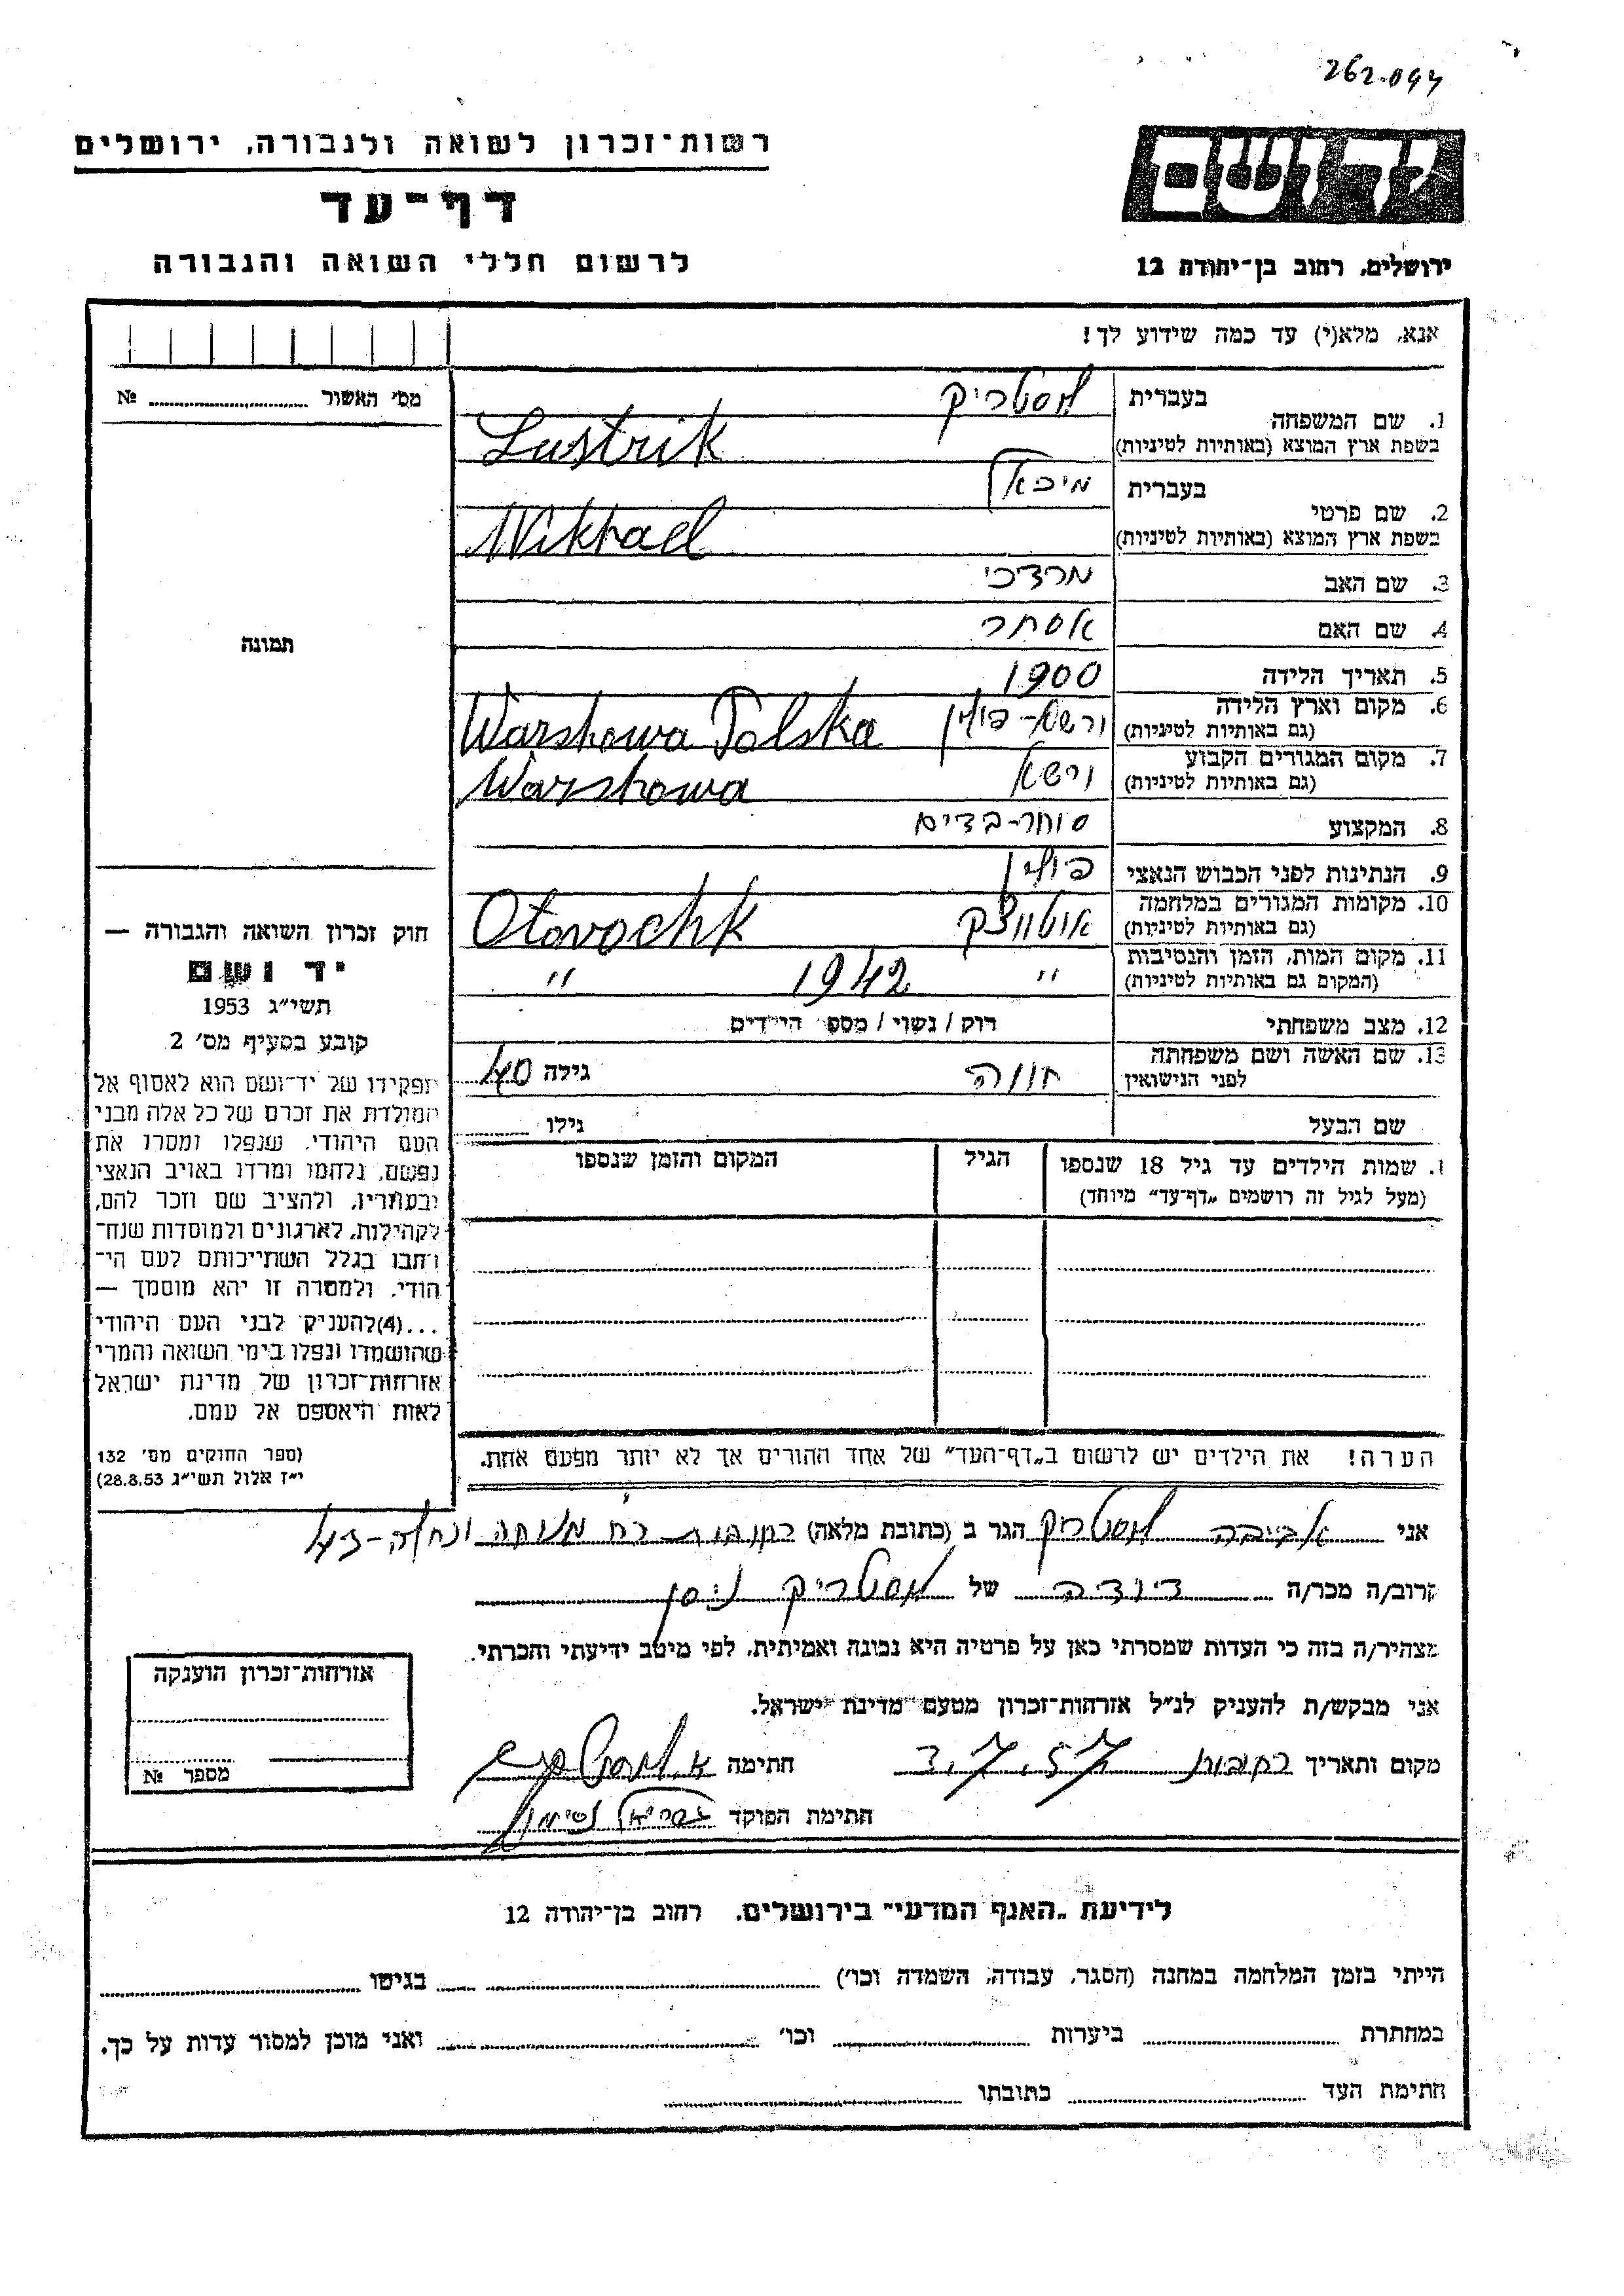 262.094
רשות־זכרון לשואה ולגבורה, ירושלים
דף־עד
לרשום חללי השואה והגבורה
יד ושם
ירושלים, רחוב בן־יהודה 12
אנא, מלא(י) עד כמה שידוע לך!
מס' האשור № 
1. שם המשפחה בעברית לוסטריק
בשפת ארץ המוצא (באותיות לטיניות) Lustrik
2. שם פרטי בעברית מיכאל
בשפת ארץ המוצא (באותיות לטיניות) Mikhael
3. שם האב מרדכי
4. שם האם אסתר
5. תאריך הלידה 1900
6. מקום וארץ הלידה (גם באותיות לטיניות) ורשא - פולין Warshowa Polska
7. מקום המגורים הקבוע (גם באותיות לטיניות) ורשא Warshowa
8. המקצוע סוחר-בדים
9. הנתינות לפני הכבוש הנאצי פולין
10. מקומות המגורים במלחמה (גם באותיות לטיניות) אוטווצק Otovochk
11. מקום המות, הזמן והנסיבות (המקום גם באותיות לטיניות) " 1942 "
12. מצב משפחתי רוק / נשוי / מספר הילדים
13. שם האשה ושם משפחתה לפני הנישואין חווה גילה 40
שם הבעל גילו
ו. שמות הילדים עד גיל 18 שנספו הגיל המקום והזמן שנספו
(מעל לגיל זה רושמים „דף־עד" מיוחד)
הערה! את הילדים יש לרשום ב„דף־העד" של אחד ההורים אך לא יותר מפעם אחת.
תמונה
חוק זכרון השואה והגבורה —
יד ושם
תשי"ג 1953
קובע בסעיף מס' 2
תפקידו של יד־ושם הוא לאסוף אל
המולדת את זכרם של כל אלה מבני
העם היהודי, שנפלו ומסרו את
נפשם, נלחמו ומרדו באויב הנאצי
ובעוזריו, ולהציב שם וזכר להם,
לקהילות, לארגונים ולמוסדות שנח־
רחבו בגלל השתייכותם לעם הי־
הודי, ולמטרה זו יהא מוסמך —
...(4)להעניק לבני העם היהודי
שהושמדו ונפלו בימי השואה והמרי
אזרחות־זכרון של מדינת ישראל
לאות היאספם אל עמם.
(ספר החוקים מס' 132
י"ז אלול תשי"ג 28.8.53)
אני אביבה לוסטריק הגר ב (כתובת מלאה) רחובות רח' מנוחה ונחלה-43
קרוב/ה מכר/ה דודה של לוסטריק ניסן
מצהיר/ה בזה כי העדות שמסרתי כאן על פרטיה היא נכונה ואמיתית, לפי מיטב ידיעתי והכרתי.
אני מבקש/ת להעניק לנ"ל אזרחות־זכרון מטעם מדינת ישראל.
מקום ותאריך רחובות 3.7.57 חתימה א. לוסטריק
חתימת הפוקד גבריאל
אזרחות־זכרון הוענקה
מספר №
לידיעת „האגף המדעי" בירושלים, רחוב בן־יהודה 12
הייתי בזמן המלחמה במחנה (הסגר, עבודה, השמדה וכו') בגיטו
במחתרת ביערות וכו' ואני מוכן למסור עדות על כך.
חתימת העד כתובתו